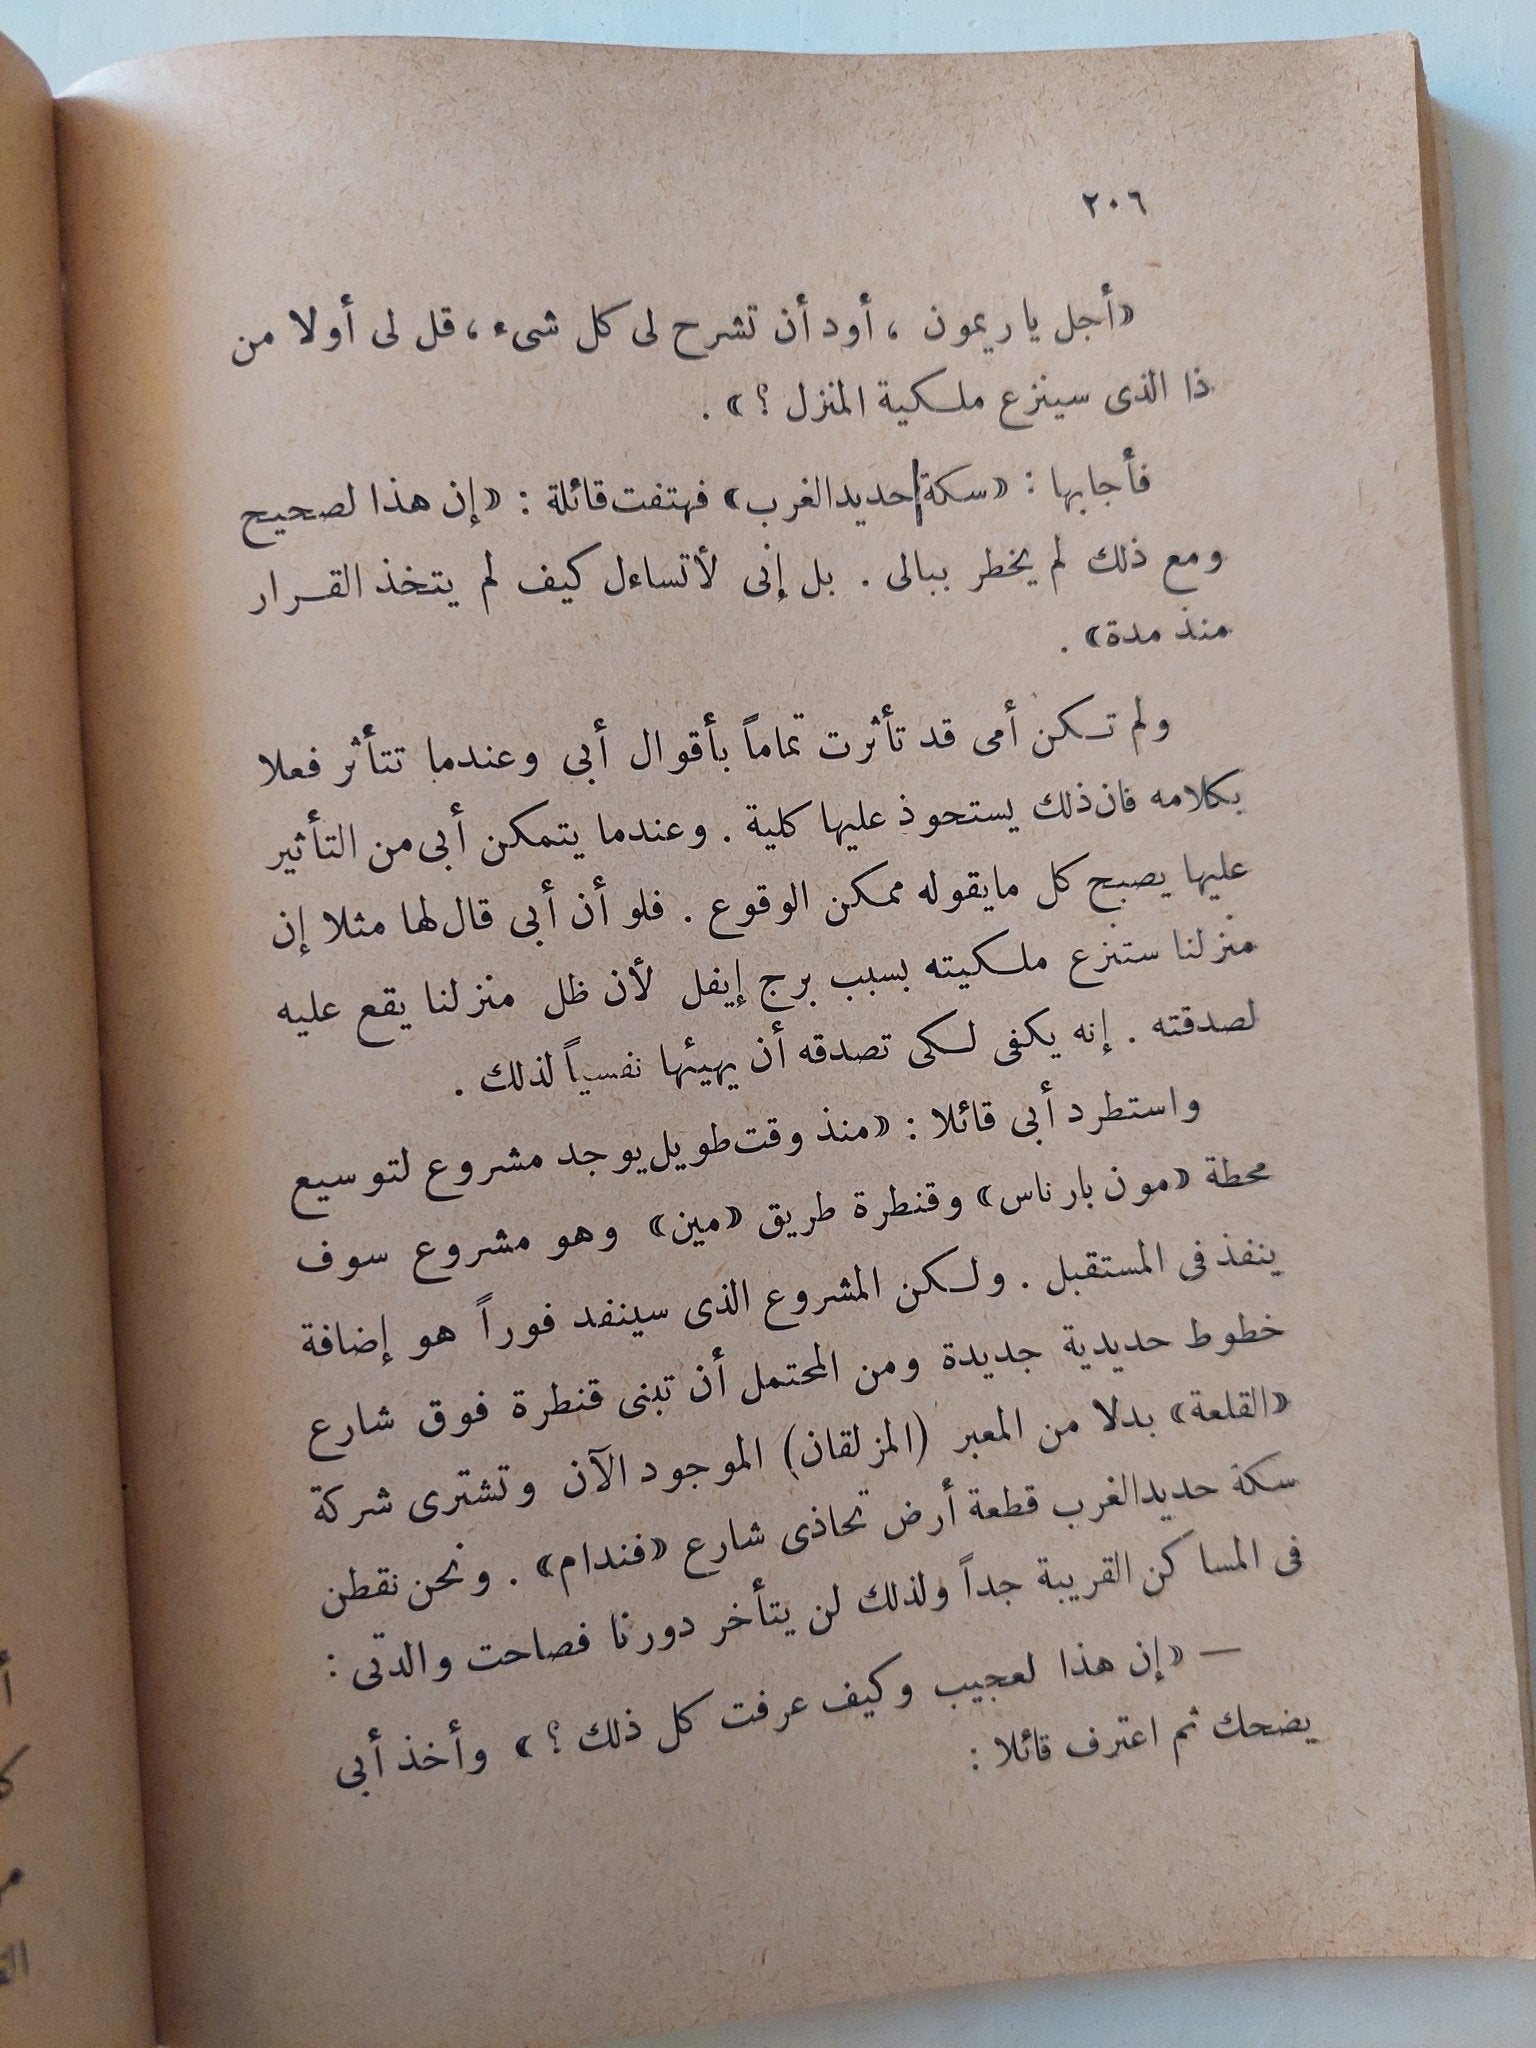 ٢٠٦
«أجل يا ريمون ، أود أن تشرح لى كل شىء ، قل لى أولا من
ذا الذى سينزع ملكية المنزل ؟» .
فأجابها : «سكة حديد الغرب» فهتفت قائلة : «إن هذا لصحيح
ومع ذلك لم يخطر ببالى . بل إنى لأتساءل كيف لم يتخذ القرار
منذ مدة» .
ولم تكن أمى قد تأثرت تماماً بأقوال أبى وعندما تتأثر فعلا
بكلامه فان ذلك يستحوذ عليها كلية . وعندما يتمكن أبى من التأثير
عليها يصبح كل مايقوله ممكن الوقوع . فلو أن أبى قال لها مثلا إن
منزلنا ستنزع ملكيته بسبب برج إيفل لأن ظل منزلنا يقع عليه
لصدقته . إنه يكفى لكى تصدقه أن يهيئها نفسياً لذلك .
واستطرد أبى قائلا : «منذ وقت طويل يوجد مشروع لتوسيع
محطة «مون بارناس» وقنطرة طريق «مين» وهو مشروع سوف
ينفذ فى المستقبل . ولكن المشروع الذى سينفد فوراً هو إضافة
خطوط حديدية جديدة ومن المحتمل أن تبنى قنطرة فوق شارع
«القلعة» بدلا من المعبر (المزلقان) الموجود الآن وتشترى شركة
سكة حديد الغرب قطعة أرض تحاذى شارع «فندام» . ونحن نقطن
فى المساكن القريبة جداً ولذلك لن يتأخر دورنا فصاحت والدتى :
— «إن هذا لعجيب وكيف عرفت كل ذلك ؟» وأخذ أبى
يضحك ثم اعترف قائلا :